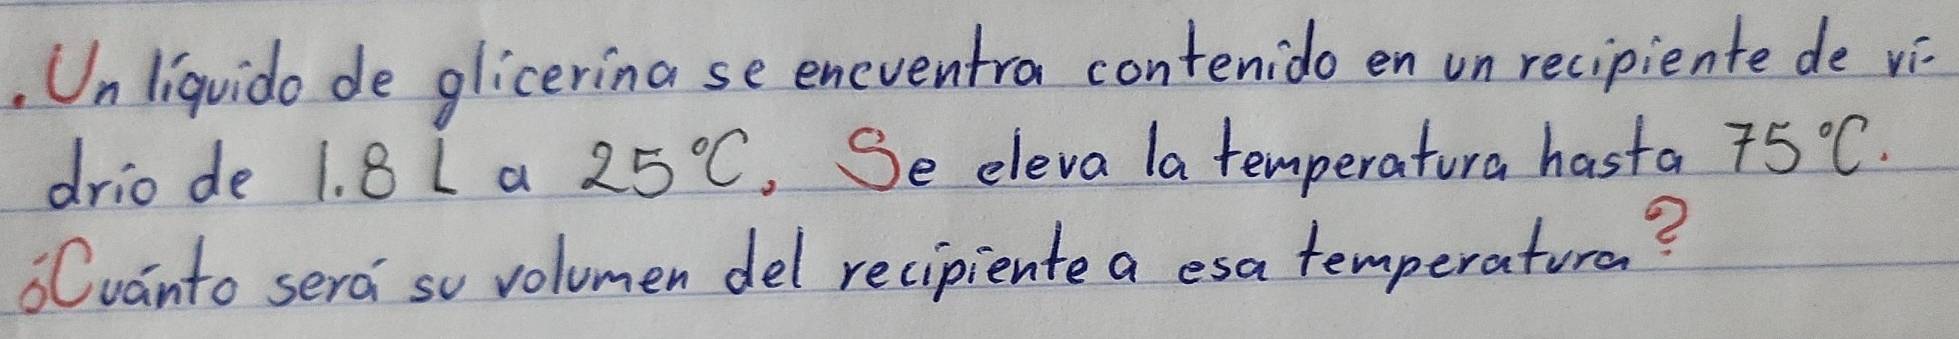 . Un líquido de glicerina se encuentra contenido en un recipiente de vi-
drio de 1.8 L a 25°C, Se eleva la temperatura hasta 75°C.
¿Cuánto será su volumen del recipiente a esa temperatura?